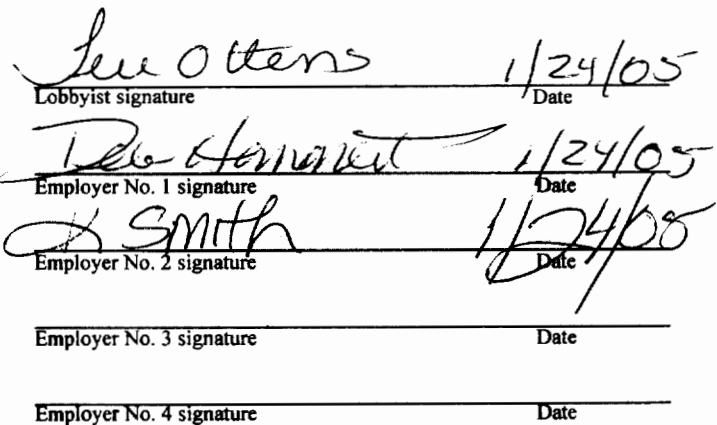 Ottens 1/24/05
Lobbyist signature Date
Deb 1/24/05
Employer No. 1 signature Date
Smith 1/24/05
Employer No. 2 signature Date
Employer No. 3 signature Date
Employer No. 4 signature Date